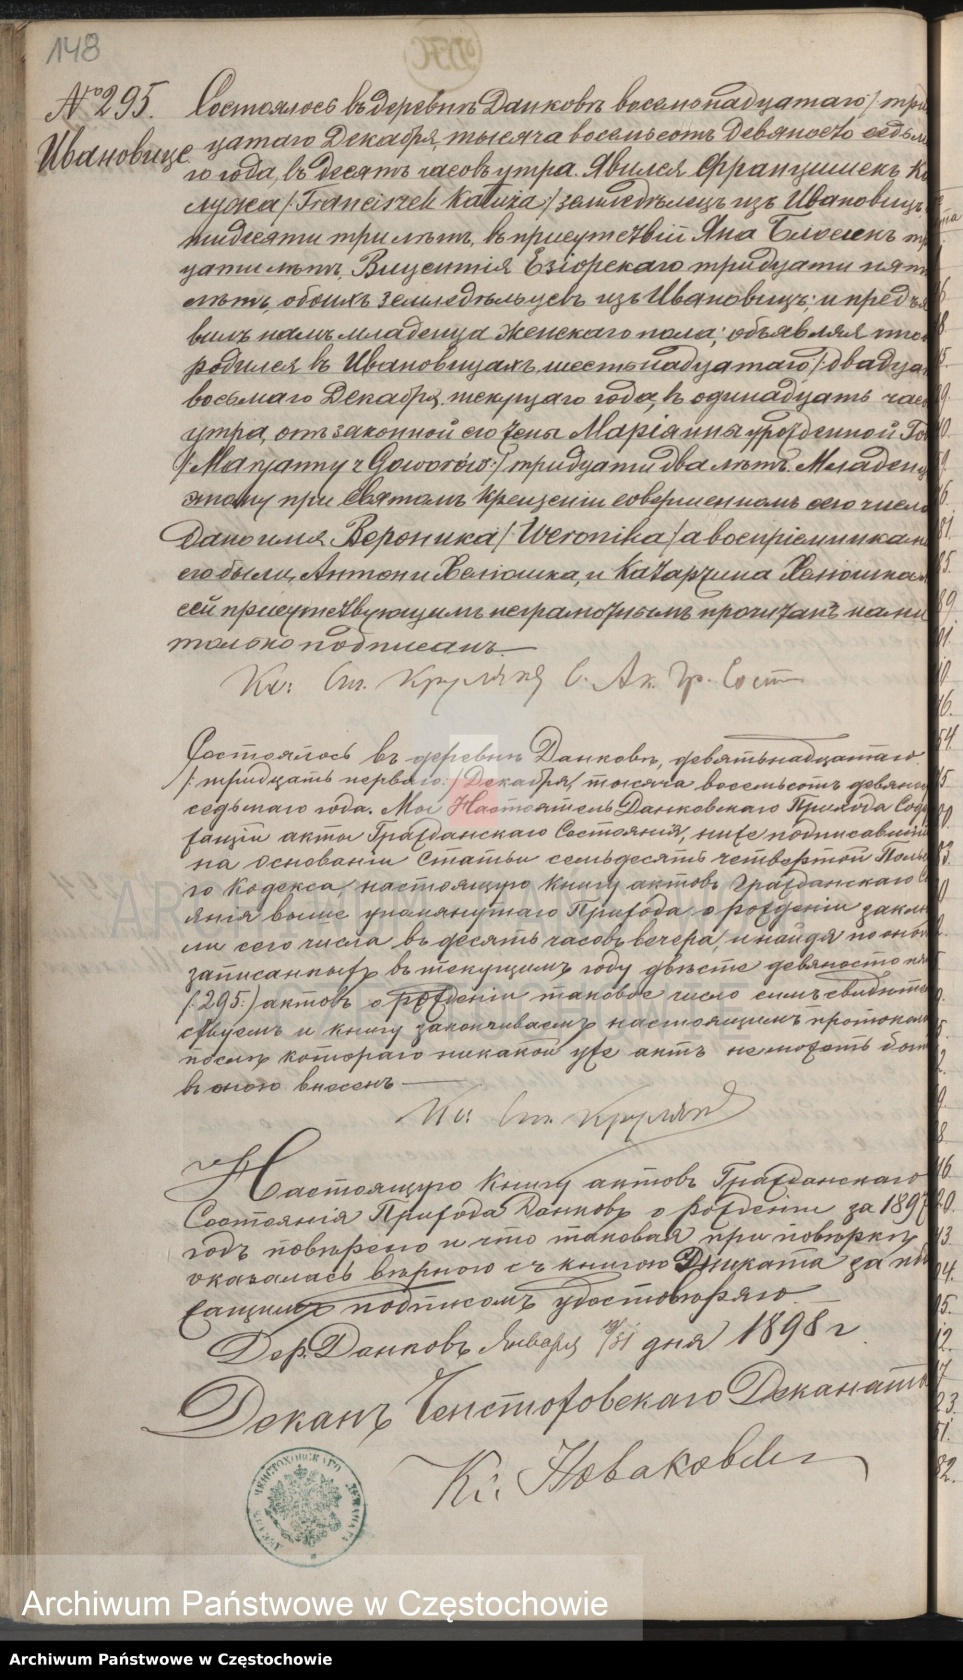 148
№ 295.
Ивановице.
Состоялось въ деревнѣ Данковѣ восемнадцатаго /: три
цатаго Декабря, тысяча восемьсотъ девяносто седьма
го года, въ десять часовъ утра. Явился Францишекъ Ка
лужа /: Franciszek Kałuża :/ земледѣлецъ изъ Ивановицъ,
тидесяти три лѣтъ, въ присутствіи Яна
цати лѣтъ, Вицентія Езіорскаго тридцати пяти
лѣтъ, обоихъ земледѣльцевъ изъ Ивановицъ; и предъя
вилъ намъ младенца женскаго пола; объявляя что
родился въ Ивановицахъ шестьнадцатаго /: двадца
восьмаго Декабря текущаго года, въ одинадцать часо
утра, отъ законной его жены Маріянны урожденной Гов
/: Maryanny z Goworów :/ тридцати два лѣтъ. Младенцу
этому при Святомъ Крещеніи совершенномъ сего числа
дано имя Вероника /: Weronika :/ а воспріемниками
его были, Антони Хенюшка, и Катаржина Хенюшка
сей присутствующимъ неграмотнымъ прочитанъ нами
только подписанъ.
Кс: Ст. Круляня С. Ак. Гр. Сост
Состоялось въ деревнѣ Данковѣ, девятьнадцатаго
/: тридцать перваго :/ Декабря, тысяча восемьсотъ девяно
седьмаго года. Мы Настоятель Данковскаго Прихода Соде
жащій акты Гражданскаго Состоянія, ниже подписавшійся
на основаніи Статьи семьдесятъ четвертой Поль
го Кодекса настоящую книгу актовъ Гражданскаго Со
янія выше упомянутаго Прихода о рожденіи заклю
ли сего числа въ десять часовъ вечера, и найдя по оной
записанныхъ въ текущемъ году двѣсте девяносто пя
(: 295 :) актовъ о рожденіи таковое число симъ свидѣте
ствуемъ и книгу закончиваемъ настоящимъ протоколо
послѣ котораго никакой уже актъ не можетъ быть
въ оною внесенъ
Кс: Ст. Круляня
Настоящую Книгу актовъ Гражданскаго
Состоянія Прихода Данковъ о рожденіи за 1897
годъ повѣрено и что таковая при повѣркѣ
оказалась вѣрною съ книгою Дупликата за на
жащимъ подписомъ удостовѣряю.
Дер. Данковъ Января 19/31 дня 1898 г.
Деканъ Ченстоховскаго Деканата
Кс: Новаковскі
ЧЕНСТОХОВСКАГО
ARCHIWUM PAŃSTWOWE
W CZĘSTOCHOWIE
Archiwum Państwowe w Częstochowie
Archiwum Państwowe w Częstochowie